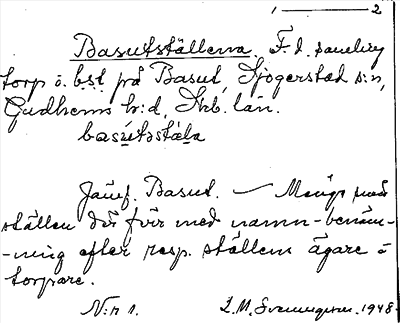 1 — 2
Basutställena. F. d.
torp o. bst på Basut, Sjogerstad s:n,
Gudhems h:d, Skb. län.
basutstäla
Jämf. Basut. — Många små
ställen där förr med namn-benäm-
-ning efter resp. ställens ägare o
torpare.
N:r 1. L.M. Svenungsson. 1948.